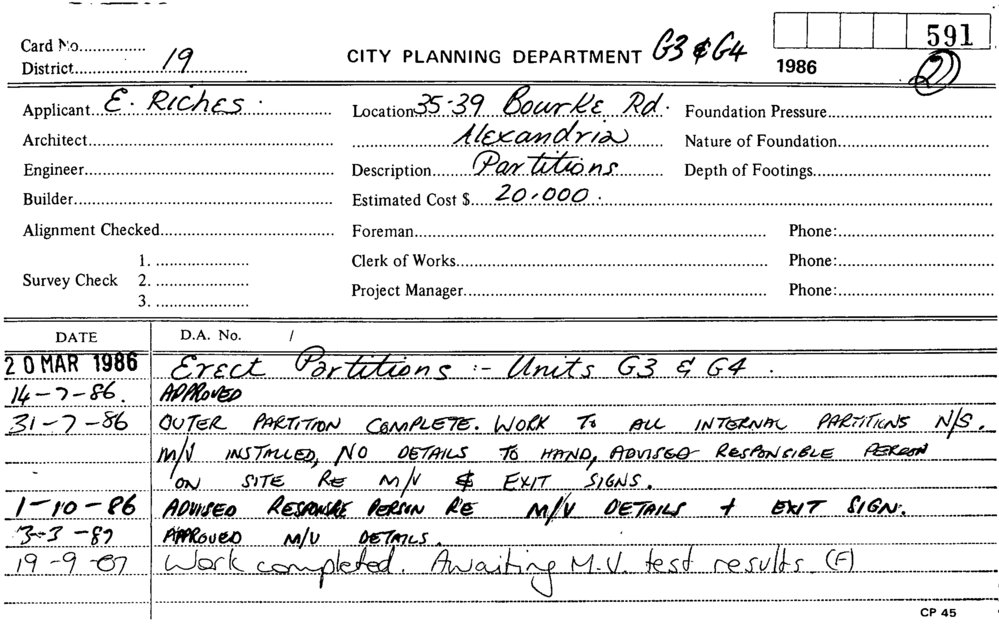 Card No............... 591
District.......19........ CITY PLANNING DEPARTMENT G3 & G4 1986 (2)
Applicant.. E. RICHES. Location 35-39 Bourke Rd. Foundation Pressure...............
Architect............... Alexandria Nature of Foundation...............
Engineer............... Description....... Partitions....... Depth of Footings...............
Builder............... Estimated Cost $.... 20,000.
Alignment Checked............... Foreman............... Phone:...............
1. ............... Clerk of Works............... Phone:...............
Survey Check 2. ...............
3. ............... Project Manager............... Phone:...............
DATE D.A. No. /
20 MAR 1986 Erect Partitions :- Units G3 & G4.
14-7-86. APPROVED
31-7-86 OUTER PARTITION COMPLETE. WORK TO ALL INTERNAL PARTITIONS N/S.
M/V INSTALLED, NO DETAILS TO HAND, ADVISED RESPONSIBLE PERSON
ON SITE RE M/V & EXIT SIGNS.
1-10-86 ADVISED RESPONSIBLE PERSON RE M/V DETAILS + EXIT SIGN.
3-3-87 APPROVED M/V DETAILS.
19-9-87 Work completed. Awaiting M.V. test results. (F)
CP 45